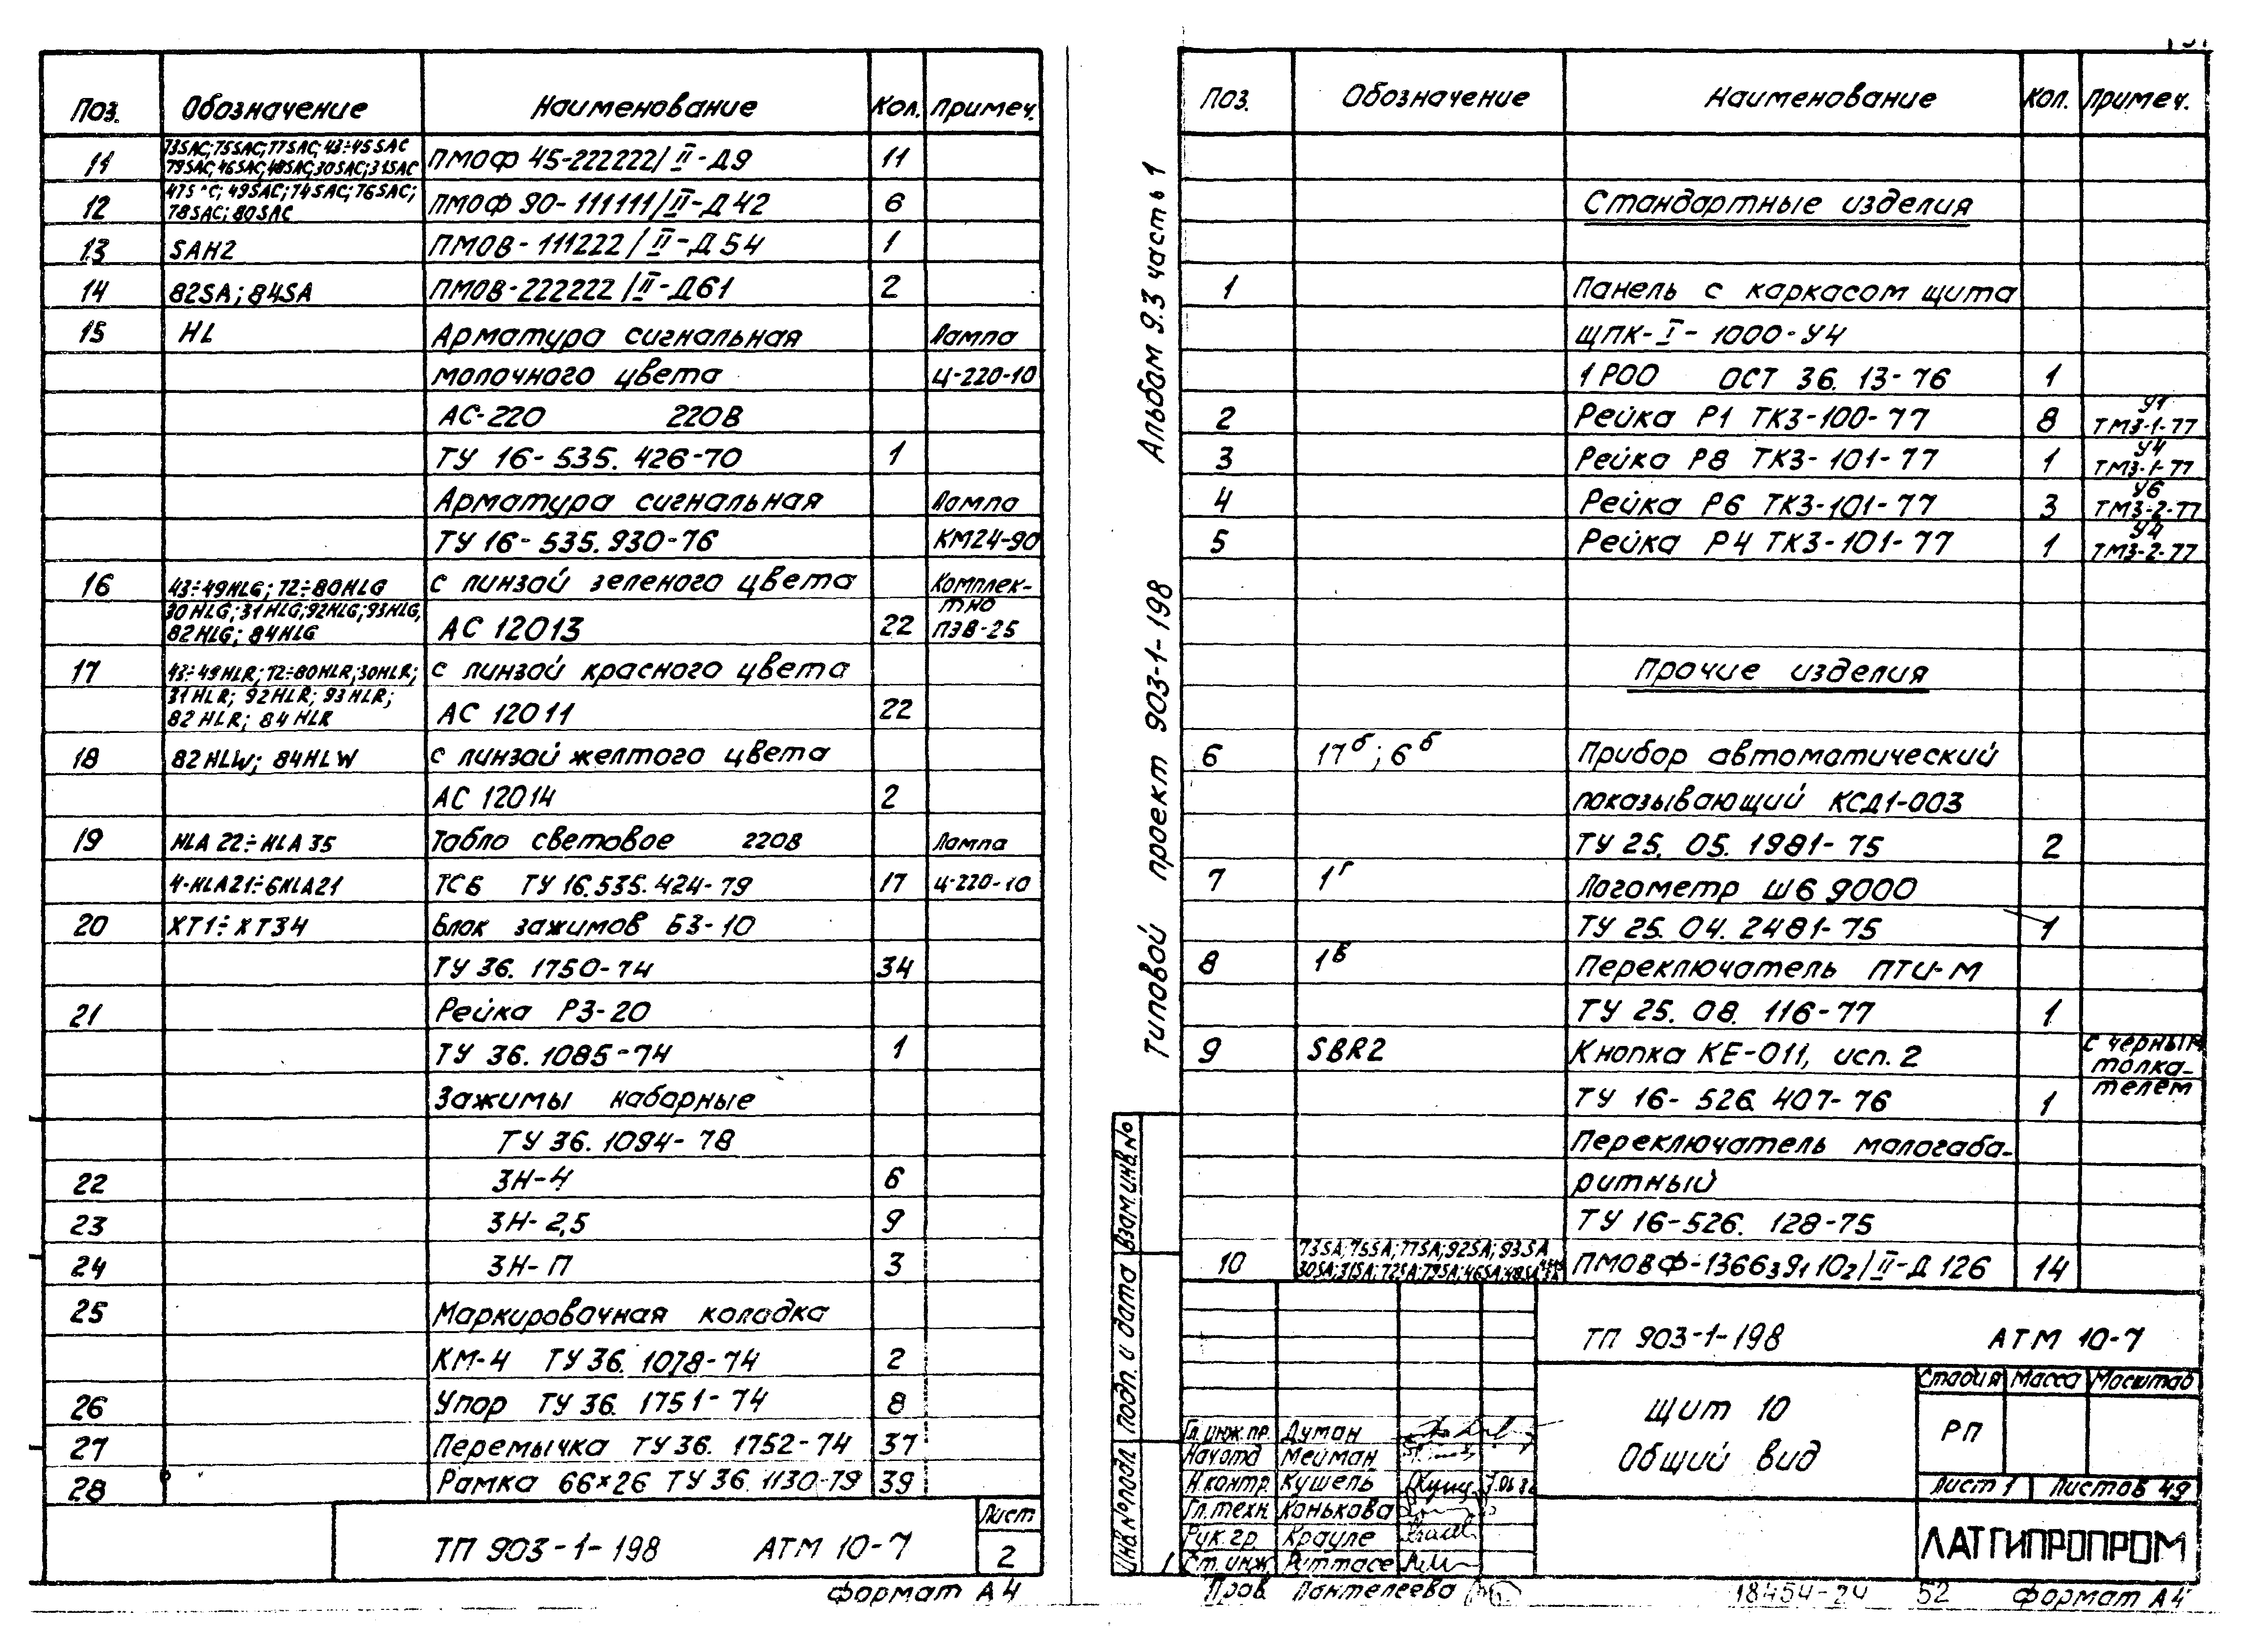 Поз. Обозначение Наименование Кол. Примеч.
73SAC; 75SAC; 77SAC; 43÷45SAC
11 79SAC; 46SAC; 48SAC; 30SAC; 31SAC ПМОФ 45-222222/II-Д9 11
49SAC; 74SAC; 76SAC;
12 78SAC; 80SAC ПМОФ 90-111111/II-Д42 6
13 SAH2 ПМОВ-111222/II-Д54 1
14 82SA; 84SA ПМОВ-222222/II-Д61 2
15 HL Арматура сигнальная Лампа
молочного цвета Ц-220-10
АС-220 220В
ТУ 16-535.426-70 1
Арматура сигнальная Лампа
ТУ 16-535.930-76 КМ24-90
16 43÷49HLG; 72÷80HLG с линзой зеленого цвета Комплек-
30HLG; 31HLG; 92HLG; 93HLG, тно
82HLG; 84HLG АС 12013 22 ПЭВ-25
17 43÷49HLR; 72÷80HLR; 30HLR; с линзой красного цвета
31HLR; 92HLR; 93HLR;
82HLR; 84HLR АС 12011 22
18 82HLW; 84HLW с линзой желтого цвета
АС 12014 2
19 HLA22÷HLA35 Табло световое 220В Лампа
4-HLA21÷6HLA21 ТСБ ТУ 16.535.424-79 17 Ц-220-10
20 XT1÷XT34 Блок зажимов БЗ-10
ТУ 36.1750-74 34
21 Рейка РЗ-20
ТУ 36.1085-74 1
Зажимы наборные
ТУ 36.1094-78
22 ЗН-4 6
23 ЗН-2,5 9
24 ЗН-П 3
25 Маркировочная колодка
КМ-4 ТУ 36.1078-74 2
26 Упор ТУ 36.1751-74 8
27 Перемычка ТУ 36.1752-74 37
28 Рамка 66×26 ТУ 36.1130-79 39
ТП 903-1-198 АТМ 10-7 Лист
2
Формат А4
Типовой проект 903-1-198 Альбом 9.3 часть 1
Поз. Обозначение Наименование Кол. Примеч.
Стандартные изделия
1 Панель с каркасом щита
ЩПК-I-1000-У4
1 РОО ОСТ 36.13-76 1
2 Рейка Р1 ТК3-100-77 8 У1 ТМ3-1-77
3 Рейка Р8 ТК3-101-77 1 У4 ТМ3-1-77
4 Рейка Р6 ТК3-101-77 3 У6 ТМ3-2-77
5 Рейка Р4 ТК3-101-77 1 У4 ТМ3-2-77
Прочие изделия
6 17б; 6б Прибор автоматический
показывающий КСД1-003
ТУ 25.05.1981-75 2
7 1г Логометр Ш69000
ТУ 25.04.2481-75 1
8 1в Переключатель ПТИ-М
ТУ 25.08.116-77 1
9 SBR2 Кнопка КЕ-011, исп. 2 с черным
толка-
ТУ 16-526.407-76 1 телем
Переключатель малогаба-
ритный
ТУ 16-526.128-75
73SA; 75SA; 77SA; 92SA; 93SA
10 30SA; 31SA; 72SA; 79SA; 46SA; 48SA ПМОВФ-1366391102/II-Д126 14
Взам.инв.№
Подп. и дата
Инв.№подл.
ТП 903-1-198 АТМ 10-7
Щит 10
Общий вид
Стадия Масса Масштаб
РП
Лист 1 Листов 49
ЛАТГИПРОПРОМ
Гл.инж.пр. Думан
Нач.отд Мейман
Н.контр. Кушель
Гл.техн. Конькова
Рук.гр. Крауле
Ст.инж. Риттасе
Пров. Пантелеева
18454-24 52 Формат А4